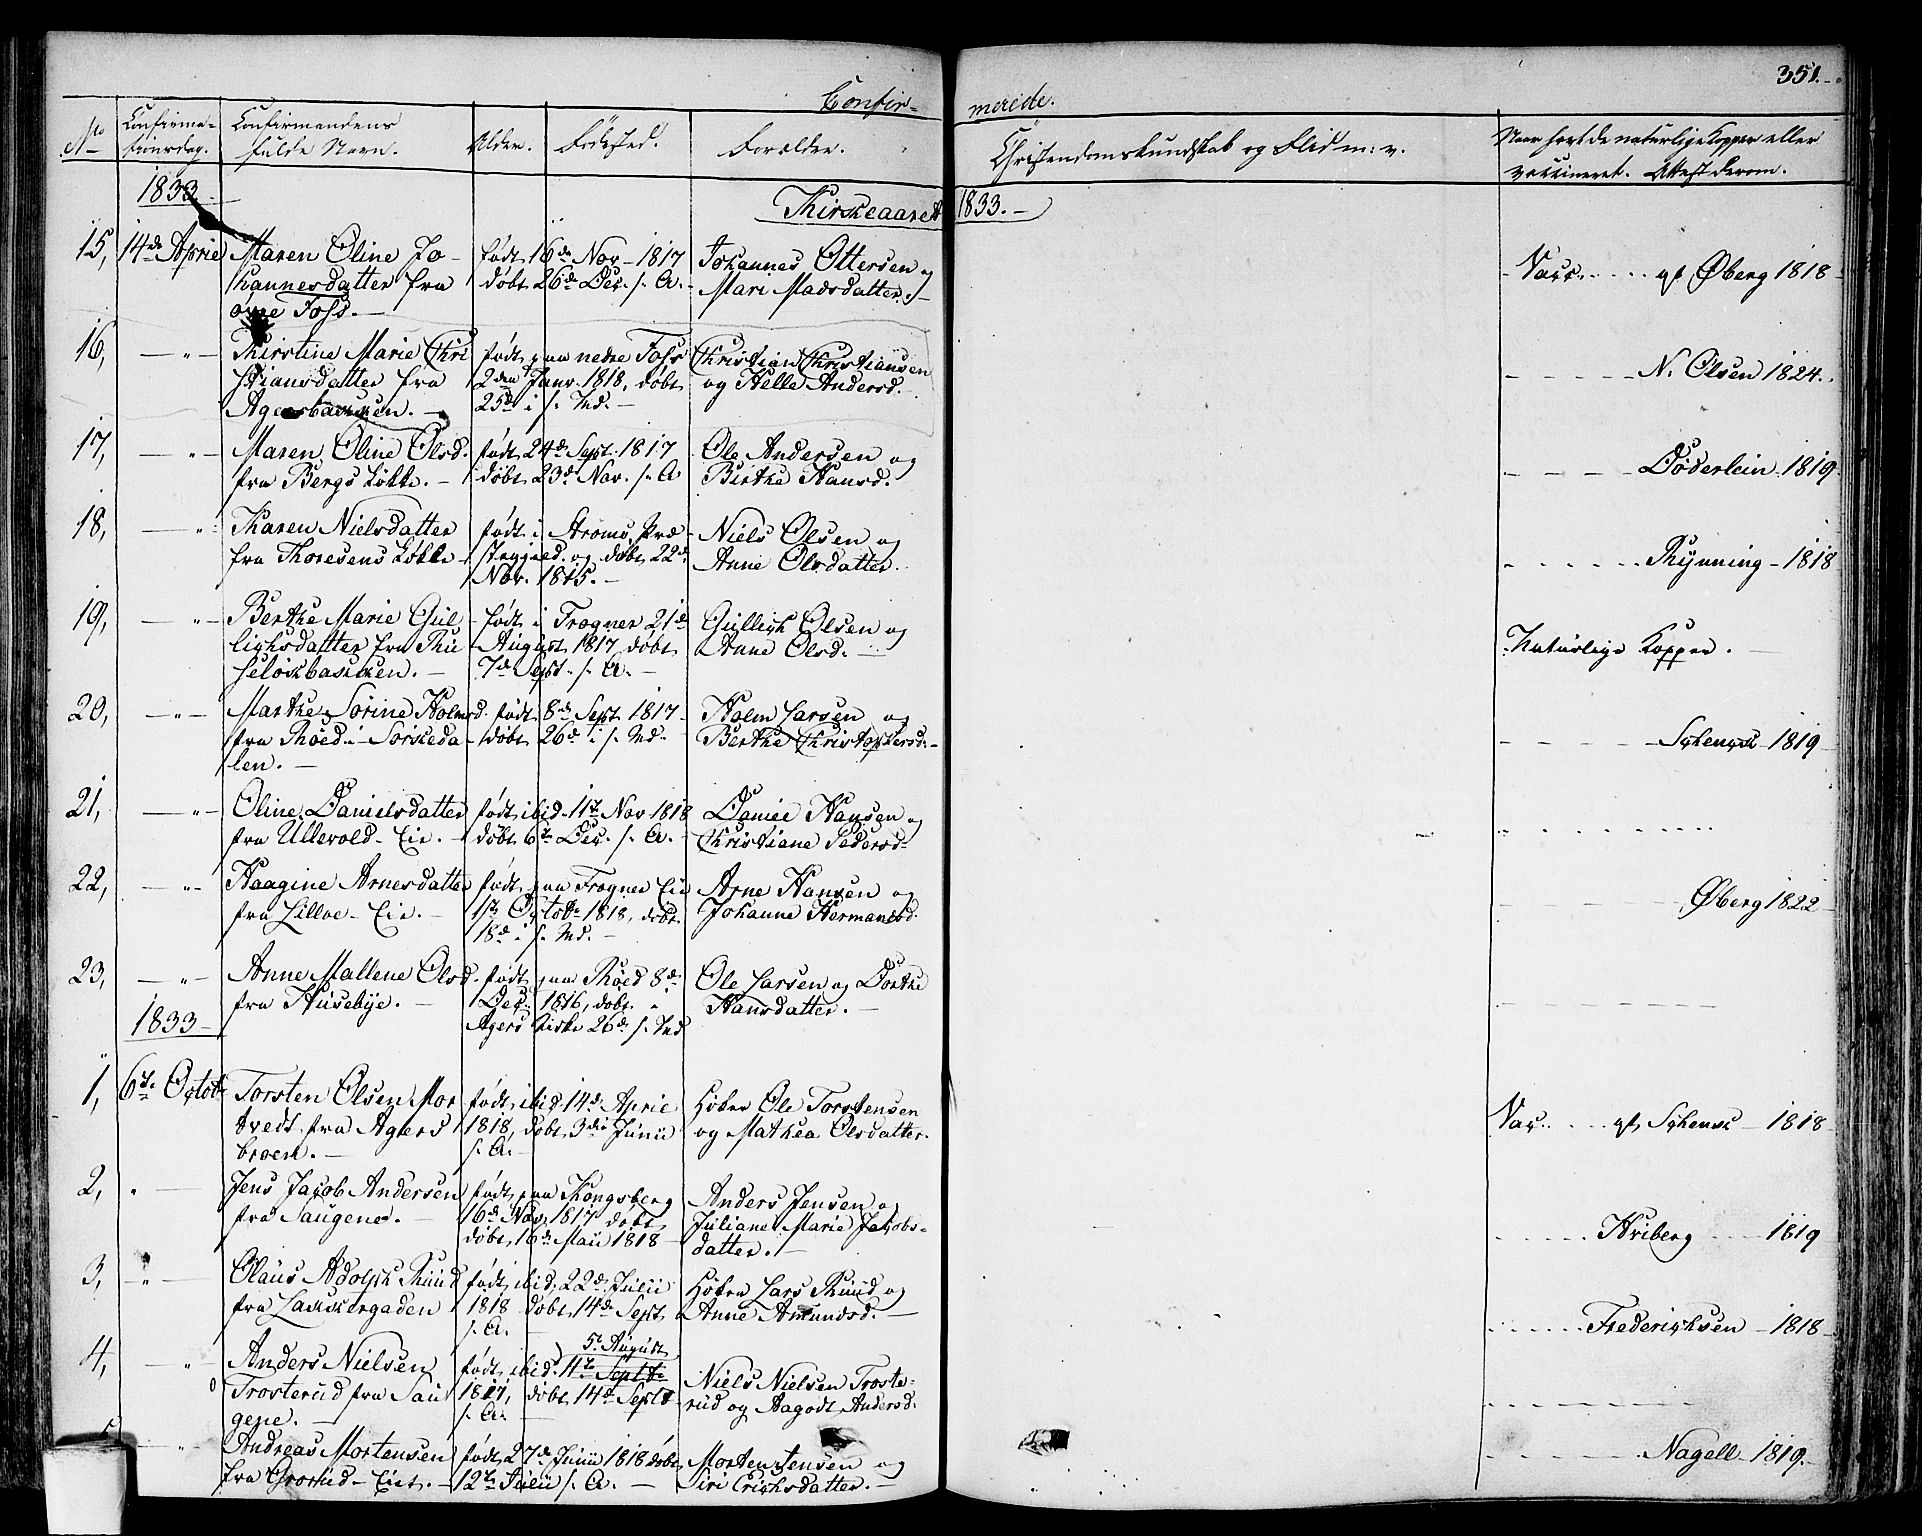 351.
Confir- merede.
No Confirmationsdag. Confirmandens fulde Navn. Alder. Fødested. Forældre. Christendomskundskab og Flid m: v. Naar havt de naturlige Kopper eller vaccineret. Attest derom.
1833. Kirkeaaret 1833.
15, 14de April Maren Oline Jo- født 16de Nov. 1817 Johannes Ottersen og Vacc. af Øberg 1818
hannesdatter fra døbt 26de Dec. s. A. Mari Madsdatter.
øvre Foss.
16, " Kirstine Marie Chri født paa nedre Foss Christian Christiansen N. Olsen 1824.
stiansdatter fra 2den Janr. 1818, døbt og Helle Andersd.
Agersbakken. 25de i s. Md.
17, " Maren Oline Olsd. født 24de Sept. 1817 Ole Andersen og Døderlein 1819
fra Bergs Løkke. døbt 23de Nov. s. A Birthe Hansd.
18, " Karen Nielsdatter født i Strøms Præ Niels Olsen og Thynning 1818
fra Thoresens Løkke stegjeld og døbt 22de Anne Olsdatter.
Nov. 1815.
19, " Berthe Marie Gul født i Frogner 21de Gullich Olsen og Naturlige Kopper.
lichsdatter fra Ru August 1817 døbt Anne Olsd.
seløkbakken. 7de Sept. s. A.
20, " Marthe Sørine Holmsd. født 8de Sept. 1817 Holm Larsen og Schenck 1819
fra Røed i Sørkeda- døbt 26de i s. Md. Berthe Christophersd.
len.
21, " Oline Danielsdatter født ibid. 11te Nov 1818 Daniel Hansen og
fra Ullevold Eie. døbt 6te Dec. s. A. Christiane Pedersd.
22, " Haagine Arnesdatter født paa Frogner Eie Arne Hansen og Øberg 1822
fra Lilloe Eie. 1ste Octobr 1818, døbt Johanne Hermansd.
18de i s. Md.
23, " Anne Mallene Olsd. født paa Røed 8de Ole Larsen og Dorthe
fra Husebye. Dec. 1816, døbt i Hansdatter.
1833 Agers Kirke 26de s. Md
1, 6te Octobr Torsten Olsen Mor født ibid. 14de April Huusm. Ole Torstensen Vac. af Schenck 1818
tvedt fra Agers 1818, døbt 3die Junii og Mathea Olsdatter.
broen. s. A.
2, " Jens Jacob Andersen født paa Kongsberg Anders Jensen og Friberg 1819
fra Saugene. 16de Nov. 1817 døbt Juliane Marie Jakobs-
døbt 16de Maii 1818 datter.
3, " Olaus Adolph Ruud født ibid. 22de Julii Lars Ruud og Frederichsen 1818
fra Lakkergaden 1818 døbt 14de Sept. Anne Amundsd.
s. A. 5te August
4, " Anders Nielsen født ibid. 11te Septbr Niels Nielsen Troste-
Trosterud fra Sau 1817, døbt 14de Septbr rud og Aagodt Andersd.
gene. s. A.
5 " Andreas Mortensen født 27de Junii 1818 døbt Morten Jensen og Nagell 1819.
fra Grorud Eie. 12te Julii s. A. Siri Erichsdatter.